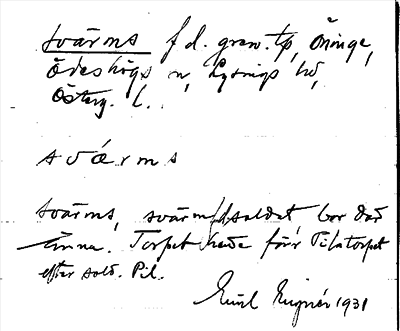 Svärms f d. gren. tp, Öninge,
Ödeshögs sn, Lysings hd,
Österg. l.
svärms
Svärms, svärm soldat bor där
ännu. Torpet hade förr Pilatorpet
efter sold. Pil.
Emil Eugnér 1931